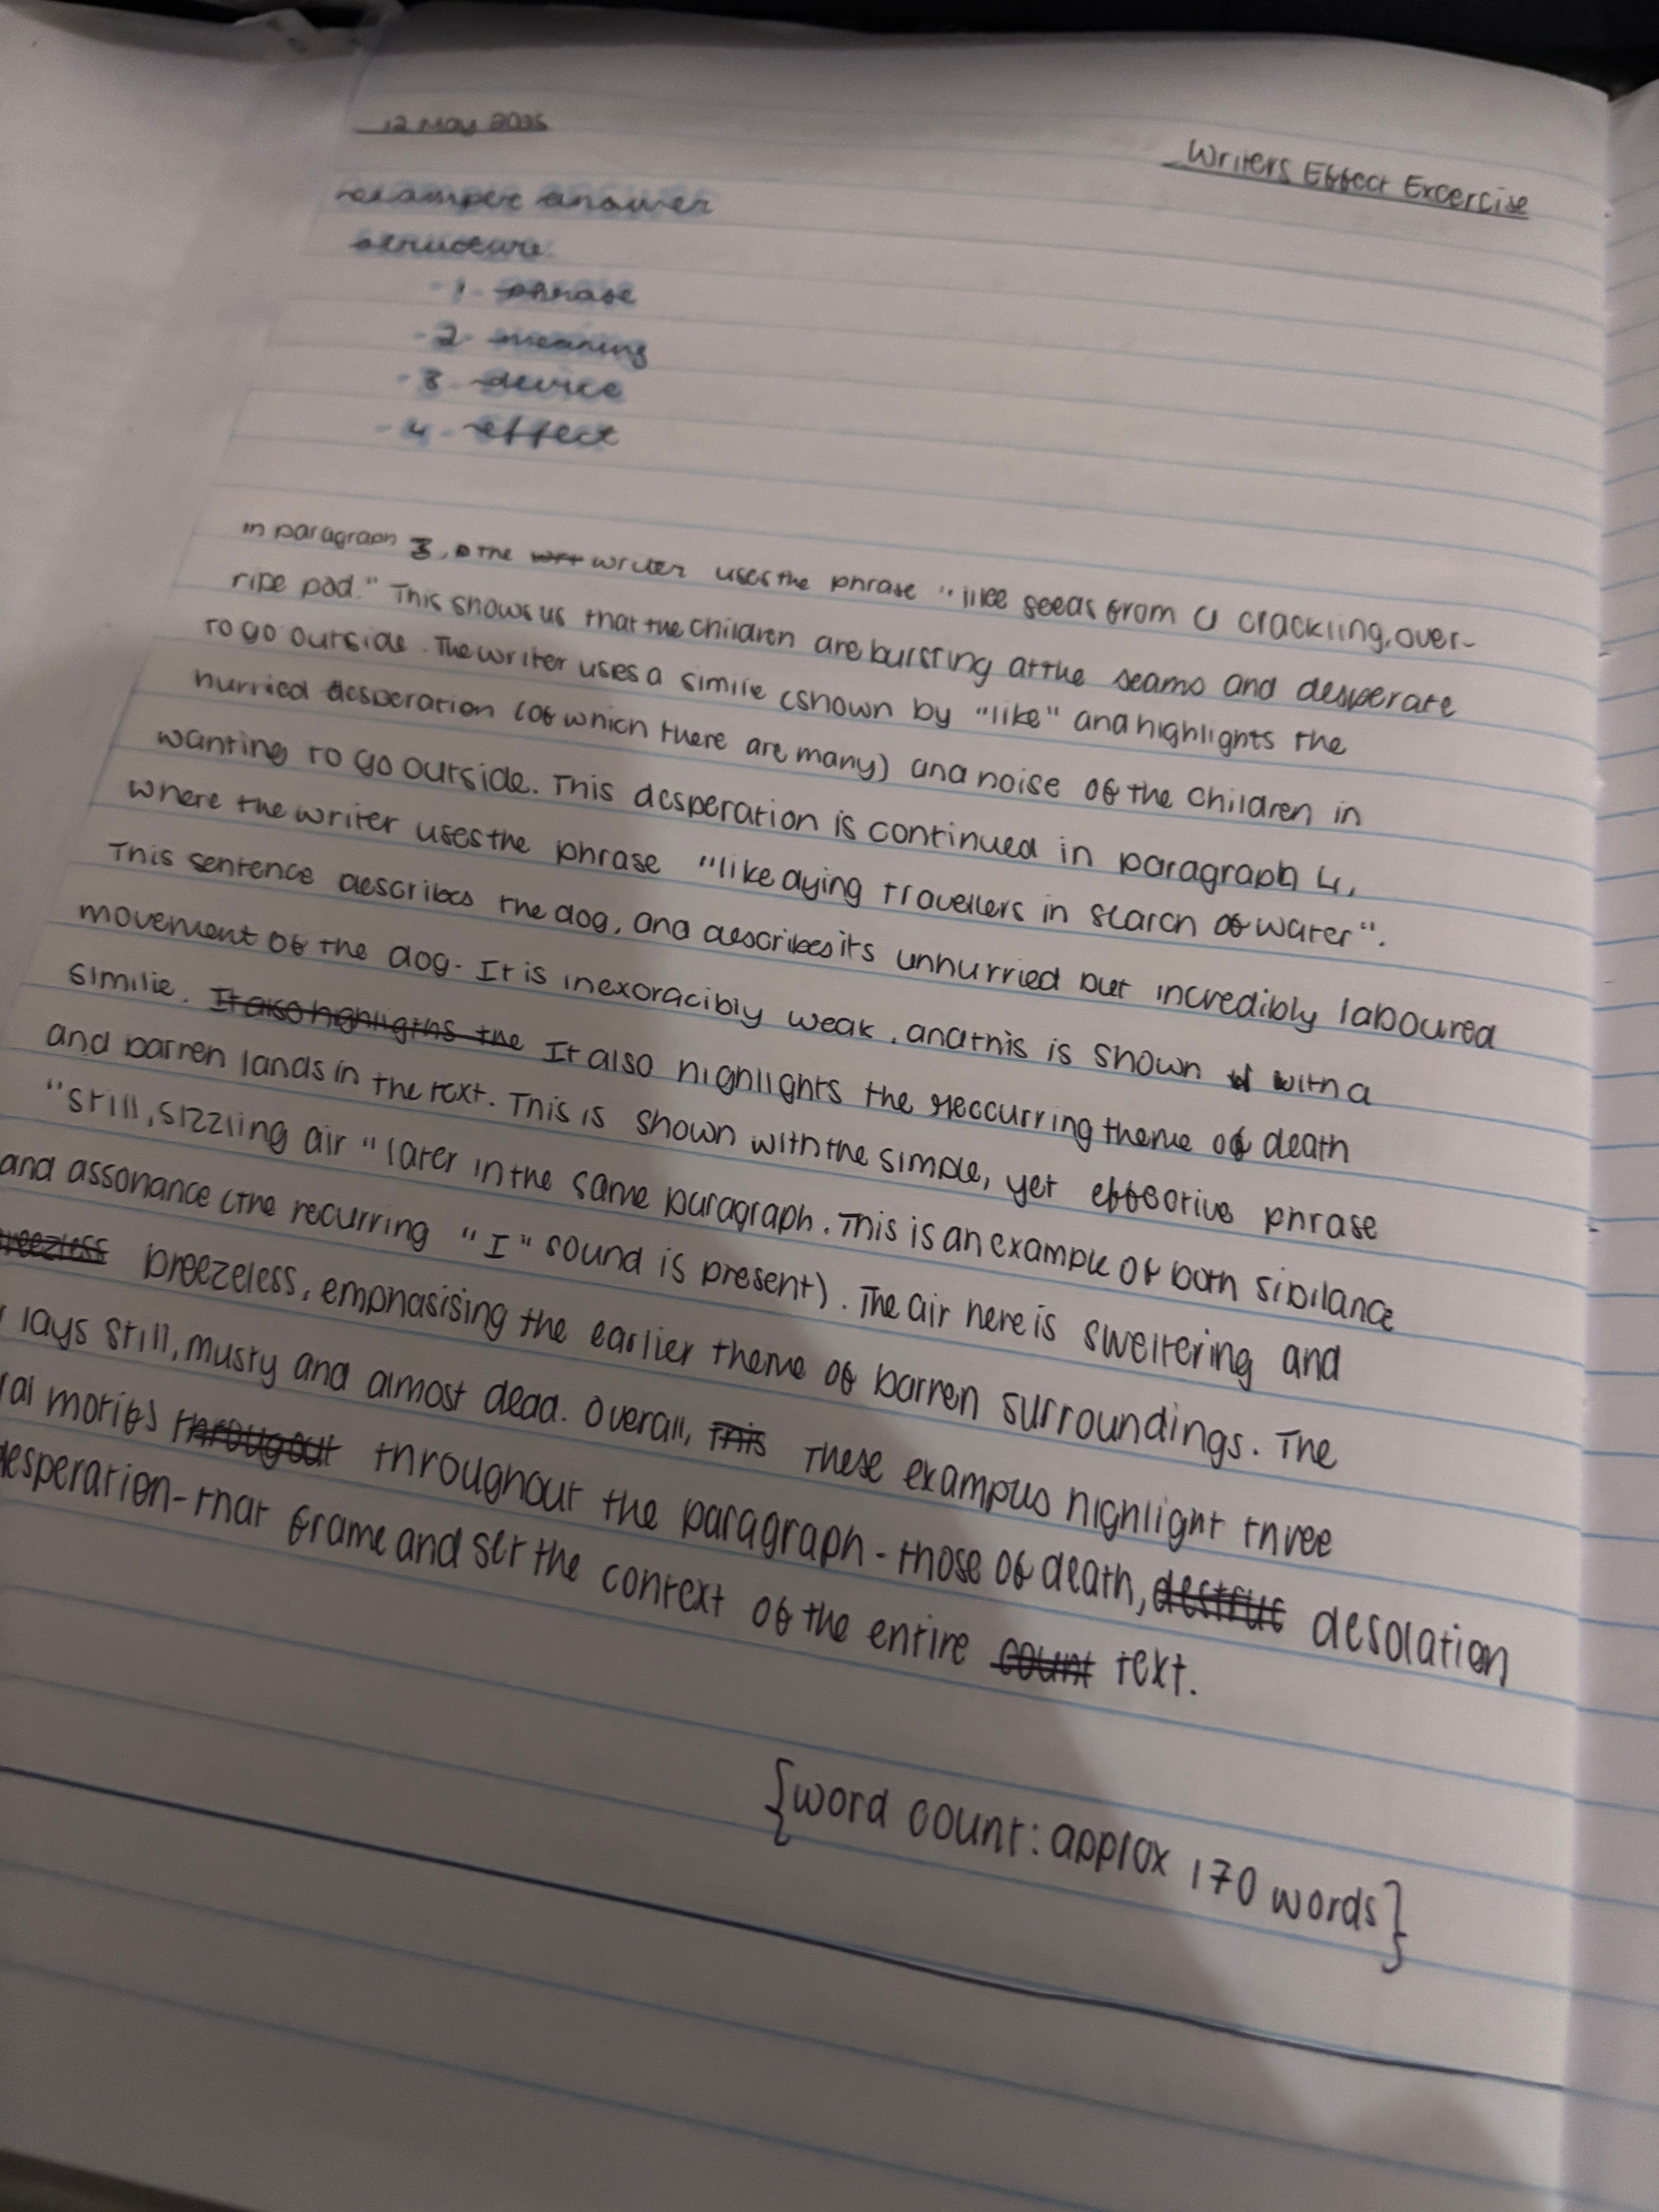 12 May 2025
Writers Effect Excercise
examper answer
structure
- 1 - phrase
- 2 - meaning
- 3 - device
- 4 - effect
In paragraph 3, the writer uses the phrase "like seeds from a crackling, over-
ripe pod." This shows us that the children are bursting at the seams and desperate
to go outside. The writer uses a similie (shown by "like" and highlights the
hurried desperation (of which there are many) and noise of the children in
wanting to go outside. This desperation is continued in paragraph 4,
where the writer uses the phrase "like dying travellers in search of water".
This sentence describes the dog, and describes its unhurried but incredibly laboured
movement of the dog. It is inexoracibly weak, and this is shown with a
similie. It also highligths the It also highlights the reccurring theme of death
and barren lands in the text. This is shown with the simple, yet effective phrase
"still, sizzling air" later in the same paragraph. This is an example of both sibilance
and assonance (the recurring "I" sound is present). The air here is sweltering and
breezeless, emphasising the earlier theme of barren surroundings. The
lays still, musty and almost dead. Overall, This These examples highlight three
motifs througout throughout the paragraph - those of death, destruc desolation
desperation - that frame and set the context of the entire count text.
{word count: approx 170 words}